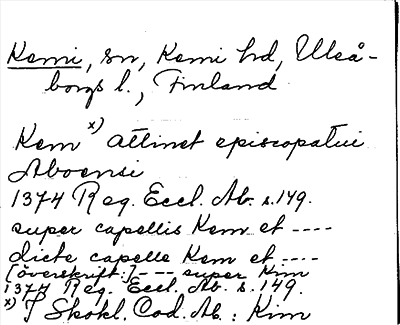 Kemi, sn, Kemi hd, Uleå-
borgs l., Finland
Kem x) attinet episcopatui
Aboensi
1374 Reg. Eccl. Ab. s. 149.
super capellis Kem et ----
dicte capelle Kem et ----
[överskrift:] --- super Kim
1374 Reg. Eccl. Ab. s. 149.
x) I Skokl. Cod. Ab.: Kim